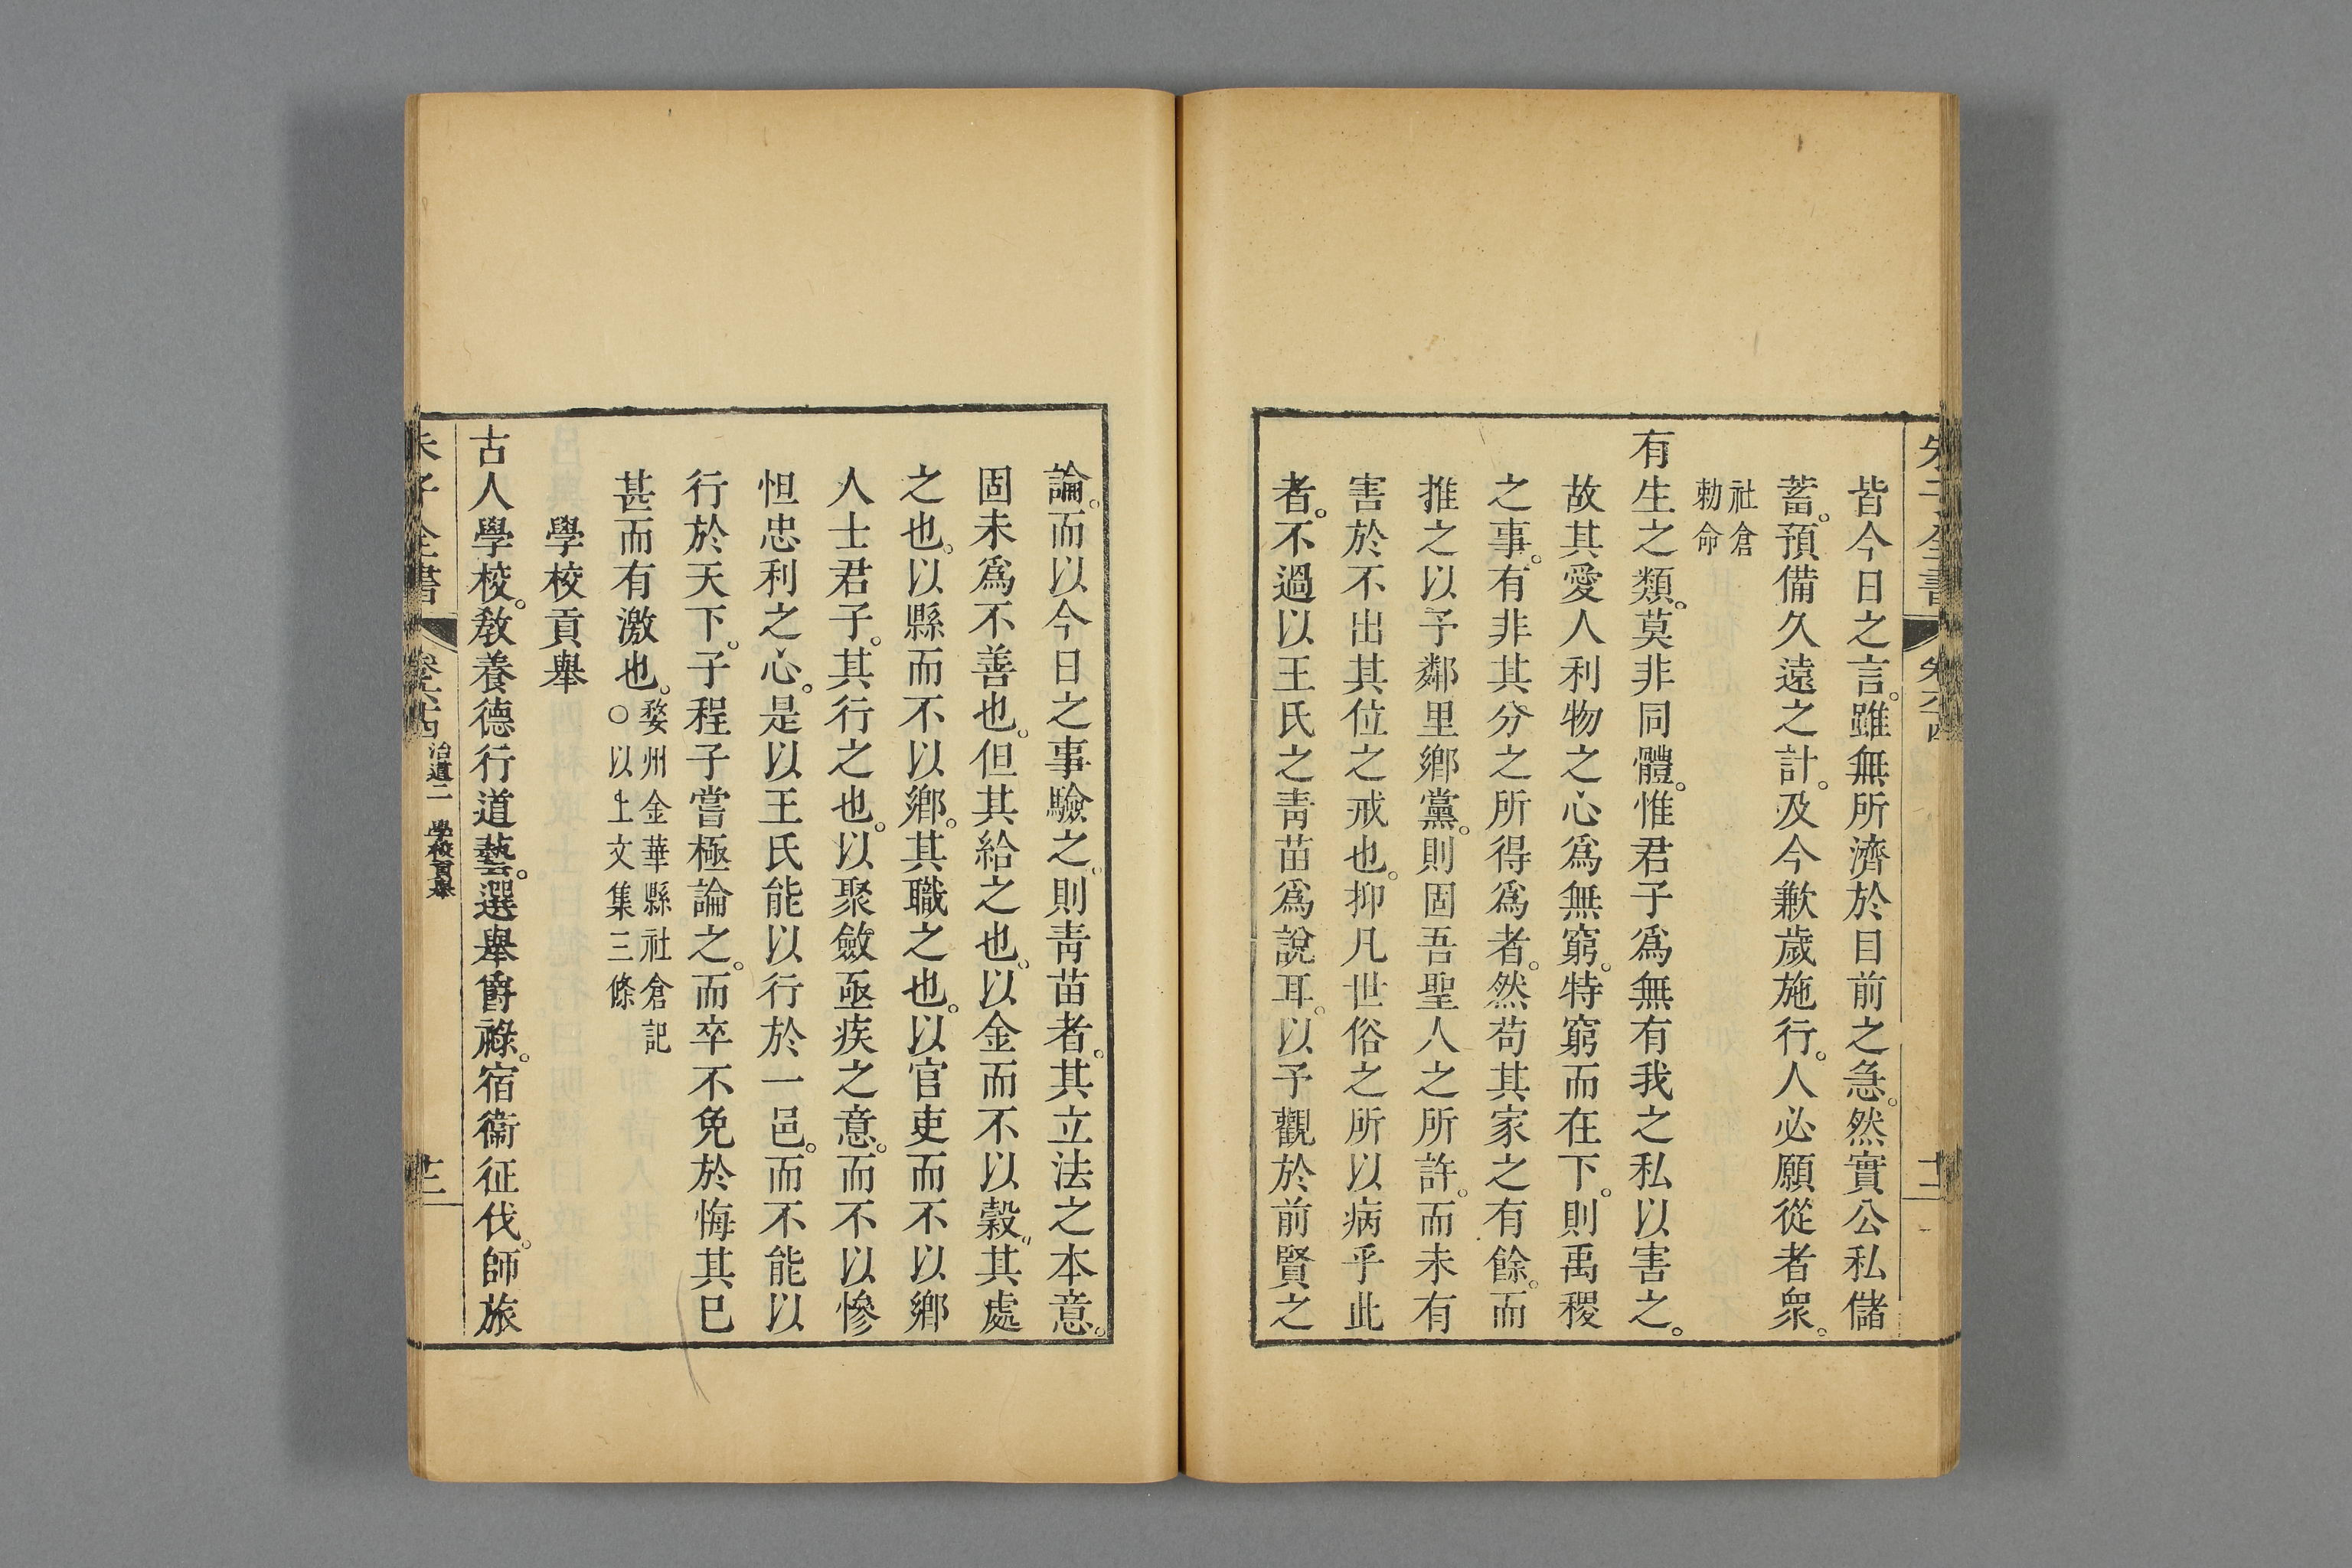 皆今日之言。雖無所濟於目前之急。然實公私儲
蓄。預備久遠之計。及今歉歲施行。人必願從者衆。
社倉
勑命
有生之類。莫非同體。惟君子爲無有我之私以害之。
故其愛人利物之心爲無窮。特窮而在下。則禹稷
之事。有非其分之所得爲者。然苟其家之有餘。而
推之以予鄰里鄉黨。則固吾聖人之所許。而未有
害於不出其位之戒也。抑凡世俗之所以病乎此
者。不過以王氏之靑苗爲說耳。以予觀於前賢之
論。而以今日之事驗之。則靑苗者。其立法之本意。
固未爲不善也。但其給之也。以金而不以穀。其處
之也。以縣而不以鄉。其職之也。以官吏而不以鄉
人士君子。其行之也。以聚斂亟疾之意。而不以慘
怛忠利之心。是以王氏能以行於一邑。而不能以
行於天下。子程子嘗極論之。而卒不免於悔其已
甚而有激也。
婺州金華縣社倉記
○以上文集三條
學校貢舉
古人學校。敎養德行道藝。選舉爵祿。宿衞征伐。師旅
朱子全書
卷六十四
治道二 學校貢舉